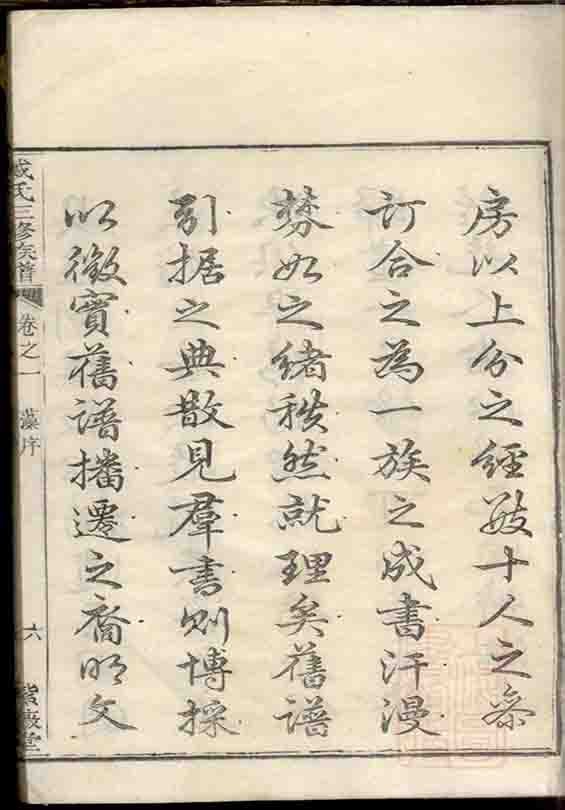 房以上分之經數十人之參
訂合之為一族之成書汗漫
棼如之緒秩然就理矣舊譜
引据之典散見羣書則博採
以徵實舊譜播遷之裔明文
氏三修族譜
卷之一
藻序
六
紫薇堂